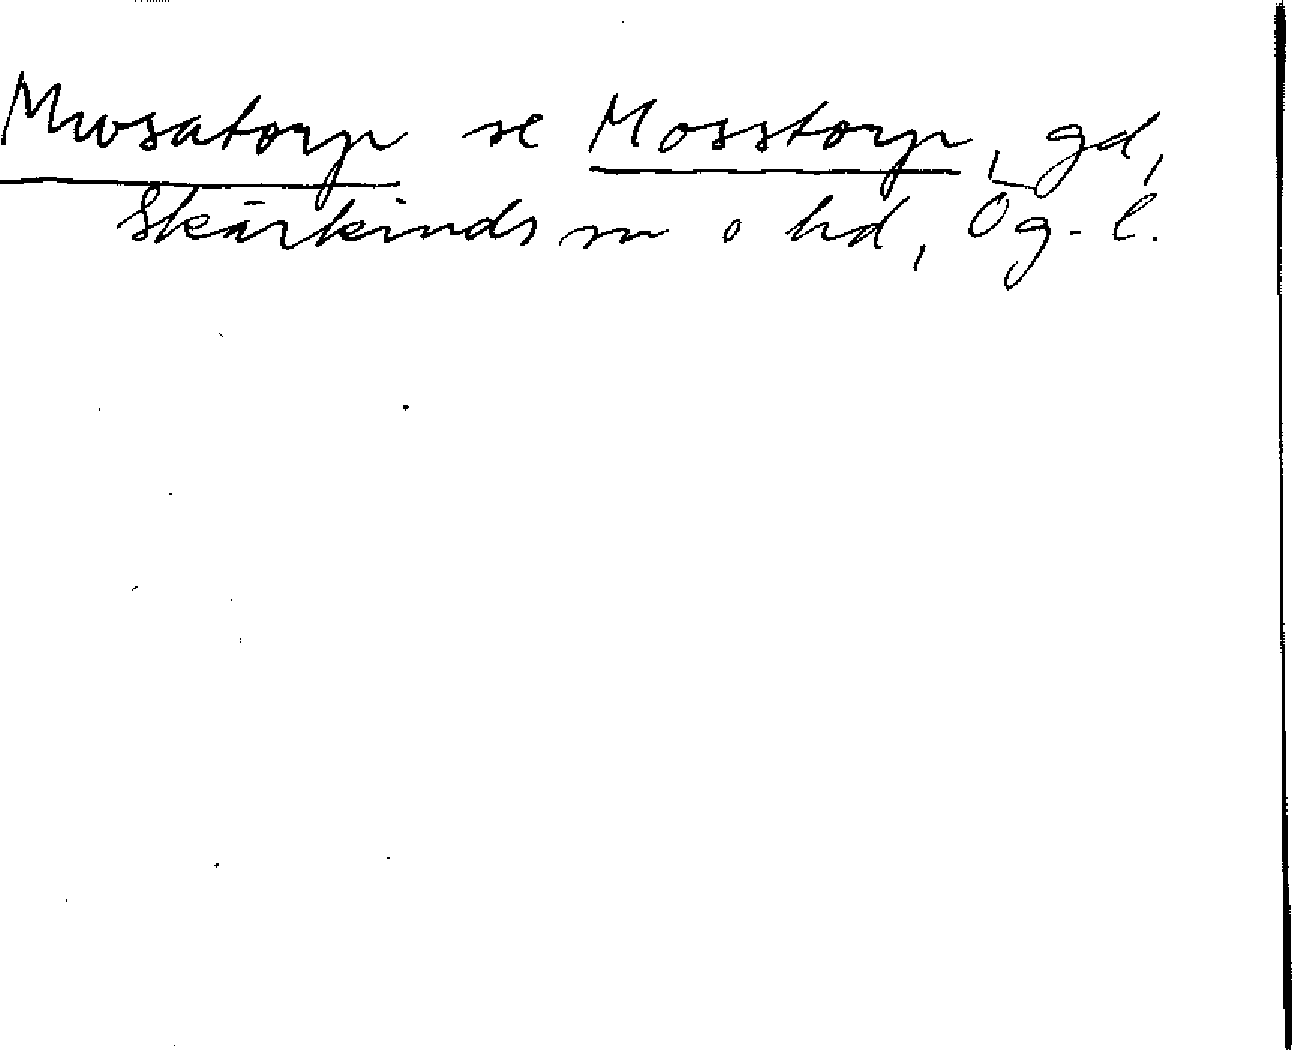 Mwsatorp se Mosstorp, gd,
Skärkinds sn o hd, Ög. l.